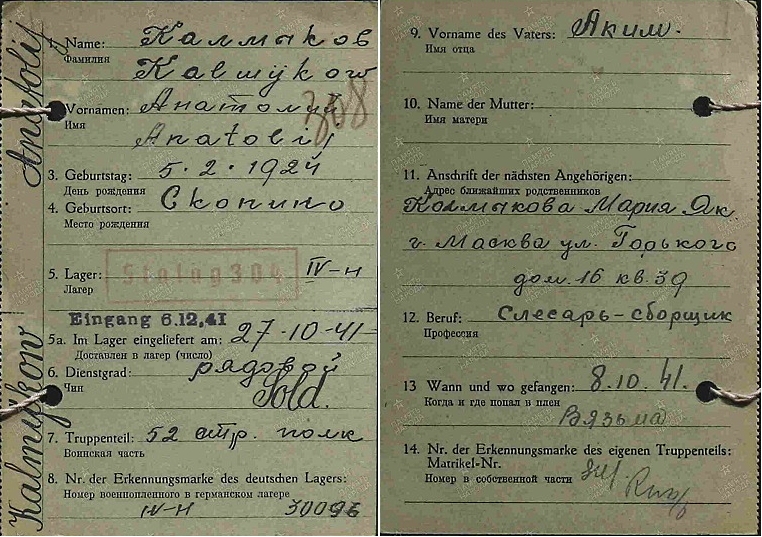 Kalmykow Anatolij
1. Name: Калмыков
Фамилия
Kalmykow
Vornamen: Анатолий
Имя
Anatolij
308
3. Geburtstag: 5.2.1924
День рождения
4. Geburtsort: Скопино
Место рождения
5. Lager: Stalag 304 IV-H
Лагерь
Eingang 6.12.41
5a. Im Lager eingeliefert am: 27-10-41
Доставлен в лагерь (число)
6. Dienstgrad: рядовой
Чин
Sold.
7. Truppenteil: 52 стр. полк
Воинская часть
8. Nr. der Erkennungsmarke des deutschen Lagers:
Номер военнопленного в германском лагере
IV-H 30096
9. Vorname des Vaters: Аким.
Имя отца
10. Name der Mutter:
Имя матери
11. Anschrift der nächsten Angehörigen:
Адрес ближайших родственников
Колмыкова Мария Як
г. Масква ул. Горького
дом. 16 кв. 39
12. Beruf: Слесарь-сборщик
Профессия
13 Wann und wo gefangen: 8.10.41.
Когда и где попал в плен
Вязьма
14. Nr. der Erkennungsmarke des eigenen Truppenteils:
Matrikel-Nr.
Номер в собственной части